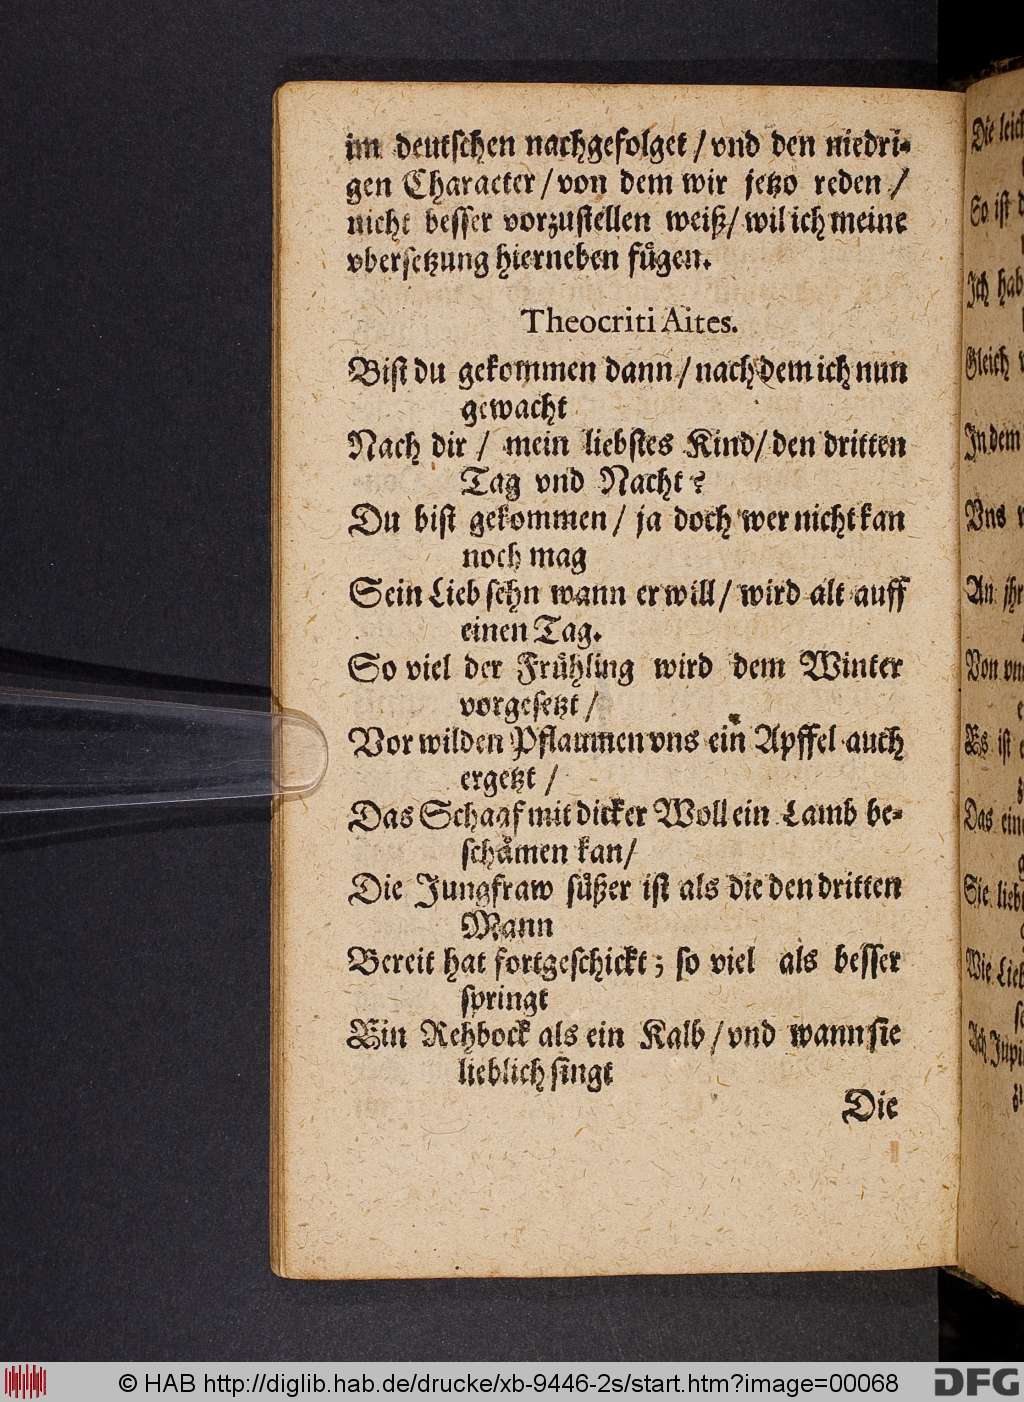 im deutſchen nachgefolget / vnd den niedri-
gen Character / von dem wir jetzo reden /
nicht beſſer vorzuſtellen weiß / wil ich meine
vberſetzung hierneben fuͤgen.
Theocriti Aites.
Biſt du gekommen dann / nach dem ich nun
gewacht
Nach dir / mein liebſtes Kind / den dritten
Tag vnd Nacht?
Du biſt gekommen / ja doch wer nicht kan
noch mag
Sein Lieb ſehn wann er will / wird alt auff
einen Tag.
So viel der Fruͤhling wird dem Winter
vorgeſetzt /
Vor wilden Pflaumen vns ein Apffel auch
ergetzt /
Das Schaaf mit dicker Woll ein Lamb be-
ſchaͤmen kan /
Die Jungfraw ſuͤßer iſt als die den dritten
Mann
Bereit hat fortgeſchickt; ſo viel als beſſer
ſpringt
Ein Rehbock als ein Kalb / vnd wann ſie
lieblich ſingt
Die
Die
So iſt
Ich hab
Gleich
In dem
Vns
An jhr
Von
Es iſt
Das
Sie
Wie
© HAB http://diglib.hab.de/drucke/xb-9446-2s/start.htm?image=00068
DFG